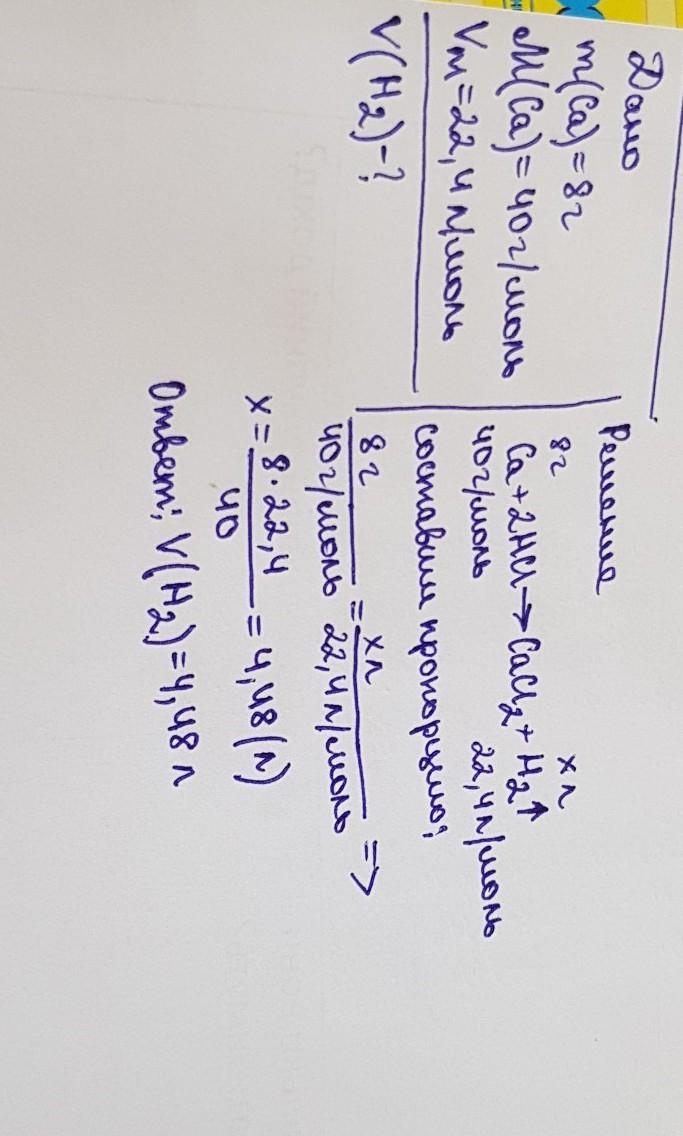 Дано
m(Ca)=8г
M(Ca)=40г/моль
Vm=22,4л/моль
V(H2)-?
Решение
8г хл
Ca+2HCl→CaCl2+H2↑
40г/моль 22,4л/моль
составим пропорцию;
8г/40г/моль = хл/22,4л/моль =>
х=8·22,4/40=4,48(л)
Ответ; V(H2)=4,48л